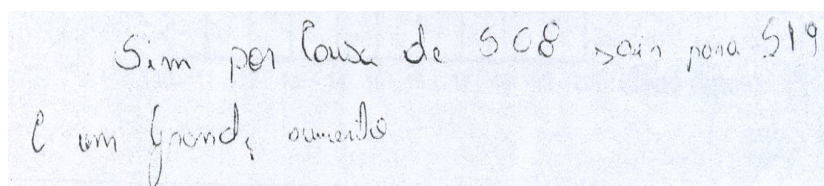 Sim por Causa de 508 sair para 519
é um Grande aumento